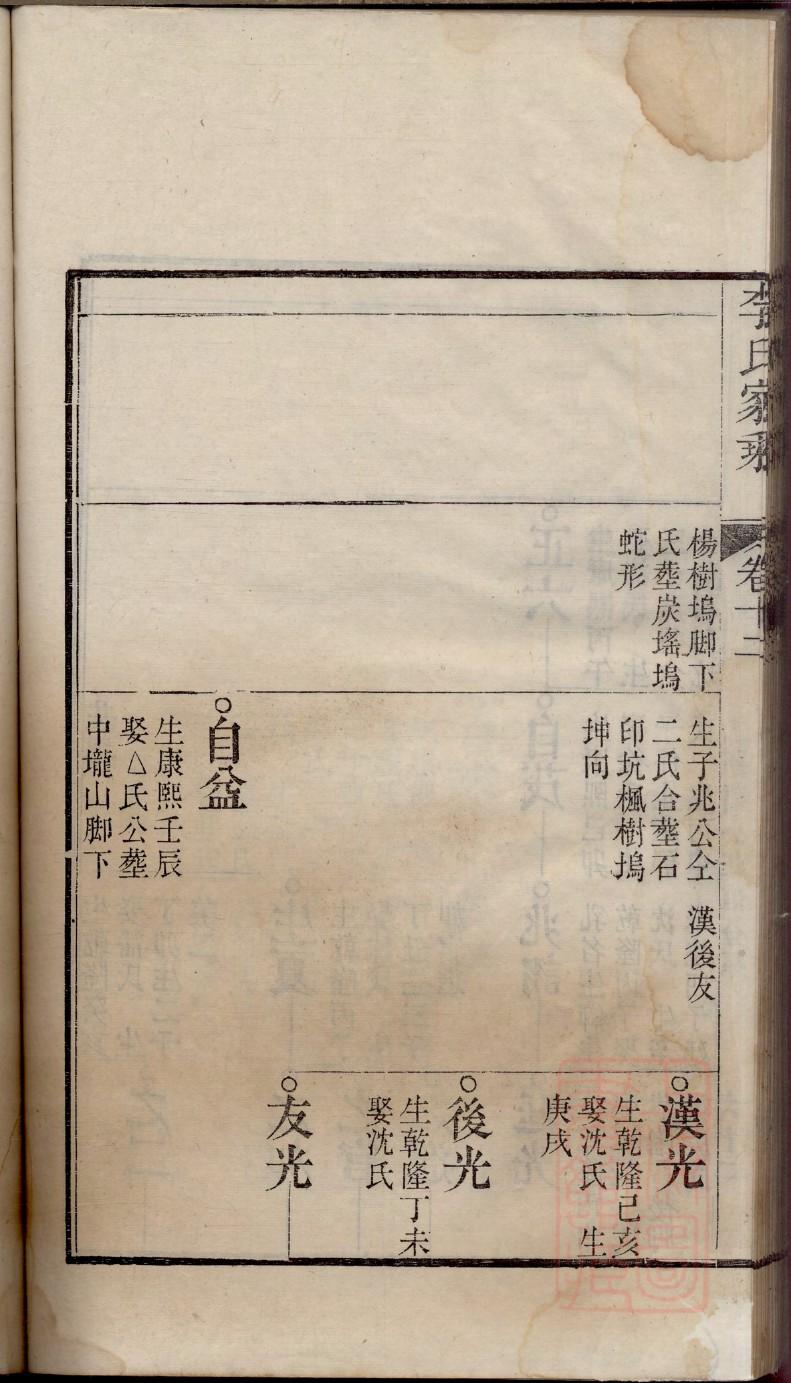 李氏家乘
卷十二
楊樹塢脚下
氏塟炭塧塢
蛇形
生子兆公仝
二氏合塟石
印坑楓樹塢
坤向
自益
生康熙壬辰
娶△氏公塟
中壠山脚下
漢後友
漢光
生乾隆己亥
娶沈氏 生
庚戌
後光
生乾隆丁未
娶沈氏
友光